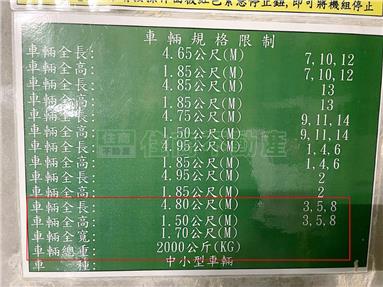 操作面板紅色緊急停止鈕,即可將機組停止
車輛規格限制
車輛全長: 4.65公尺(M) 7,10,12
車輛全高: 1.85公尺(M) 7,10,12
車輛全長: 4.85公尺(M) 13
車輛全高: 1.85公尺(M) 13
車輛全長: 4.75公尺(M) 9,11,14
車輛全高: 1.50公尺(M) 9,11,14
車輛全長: 4.95公尺(M) 1,4,6
車輛全高: 1.85公尺(M) 1,4,6
車輛全長: 4.95公尺(M) 2
車輛全高: 1.85公尺(M) 2
車輛全長: 4.80公尺(M) 3,5,8
車輛全高: 1.50公尺(M) 3,5,8
車輛全寬: 1.70公尺(M)
車輛總重: 2000公斤(KG)
車 種: 中小型車輛
住商
不動產
住商不動產